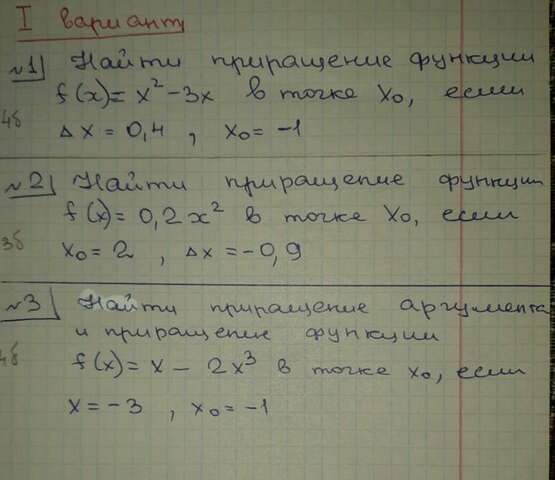 I вариант
№1 Найти приращение функции
f(x)= x² - 3x в точке x₀, если
4б
Δx = 0,4 , x₀ = -1
№2 Найти приращение функции
f(x)= 0,2x² в точке x₀, если
3б
x₀ = 2 , Δx = -0,9
№3 Найти приращение аргумента
и приращение функции
4б
f(x) = x - 2x³ в точке x₀, если
x = -3 , x₀ = -1